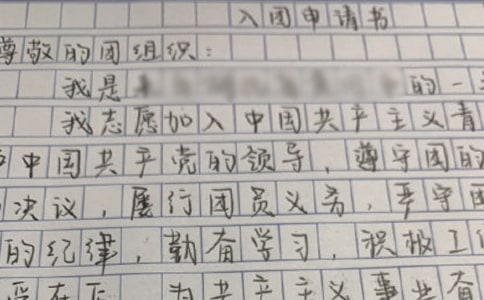 入团申请书
尊敬的团组织：
我是 的一
我志愿加入中国共产主义青
中国共产党的领导，遵守团的
决议，履行团员义务，严守团
的纪律，勤奋学习，积极工
为共产主义事业奋